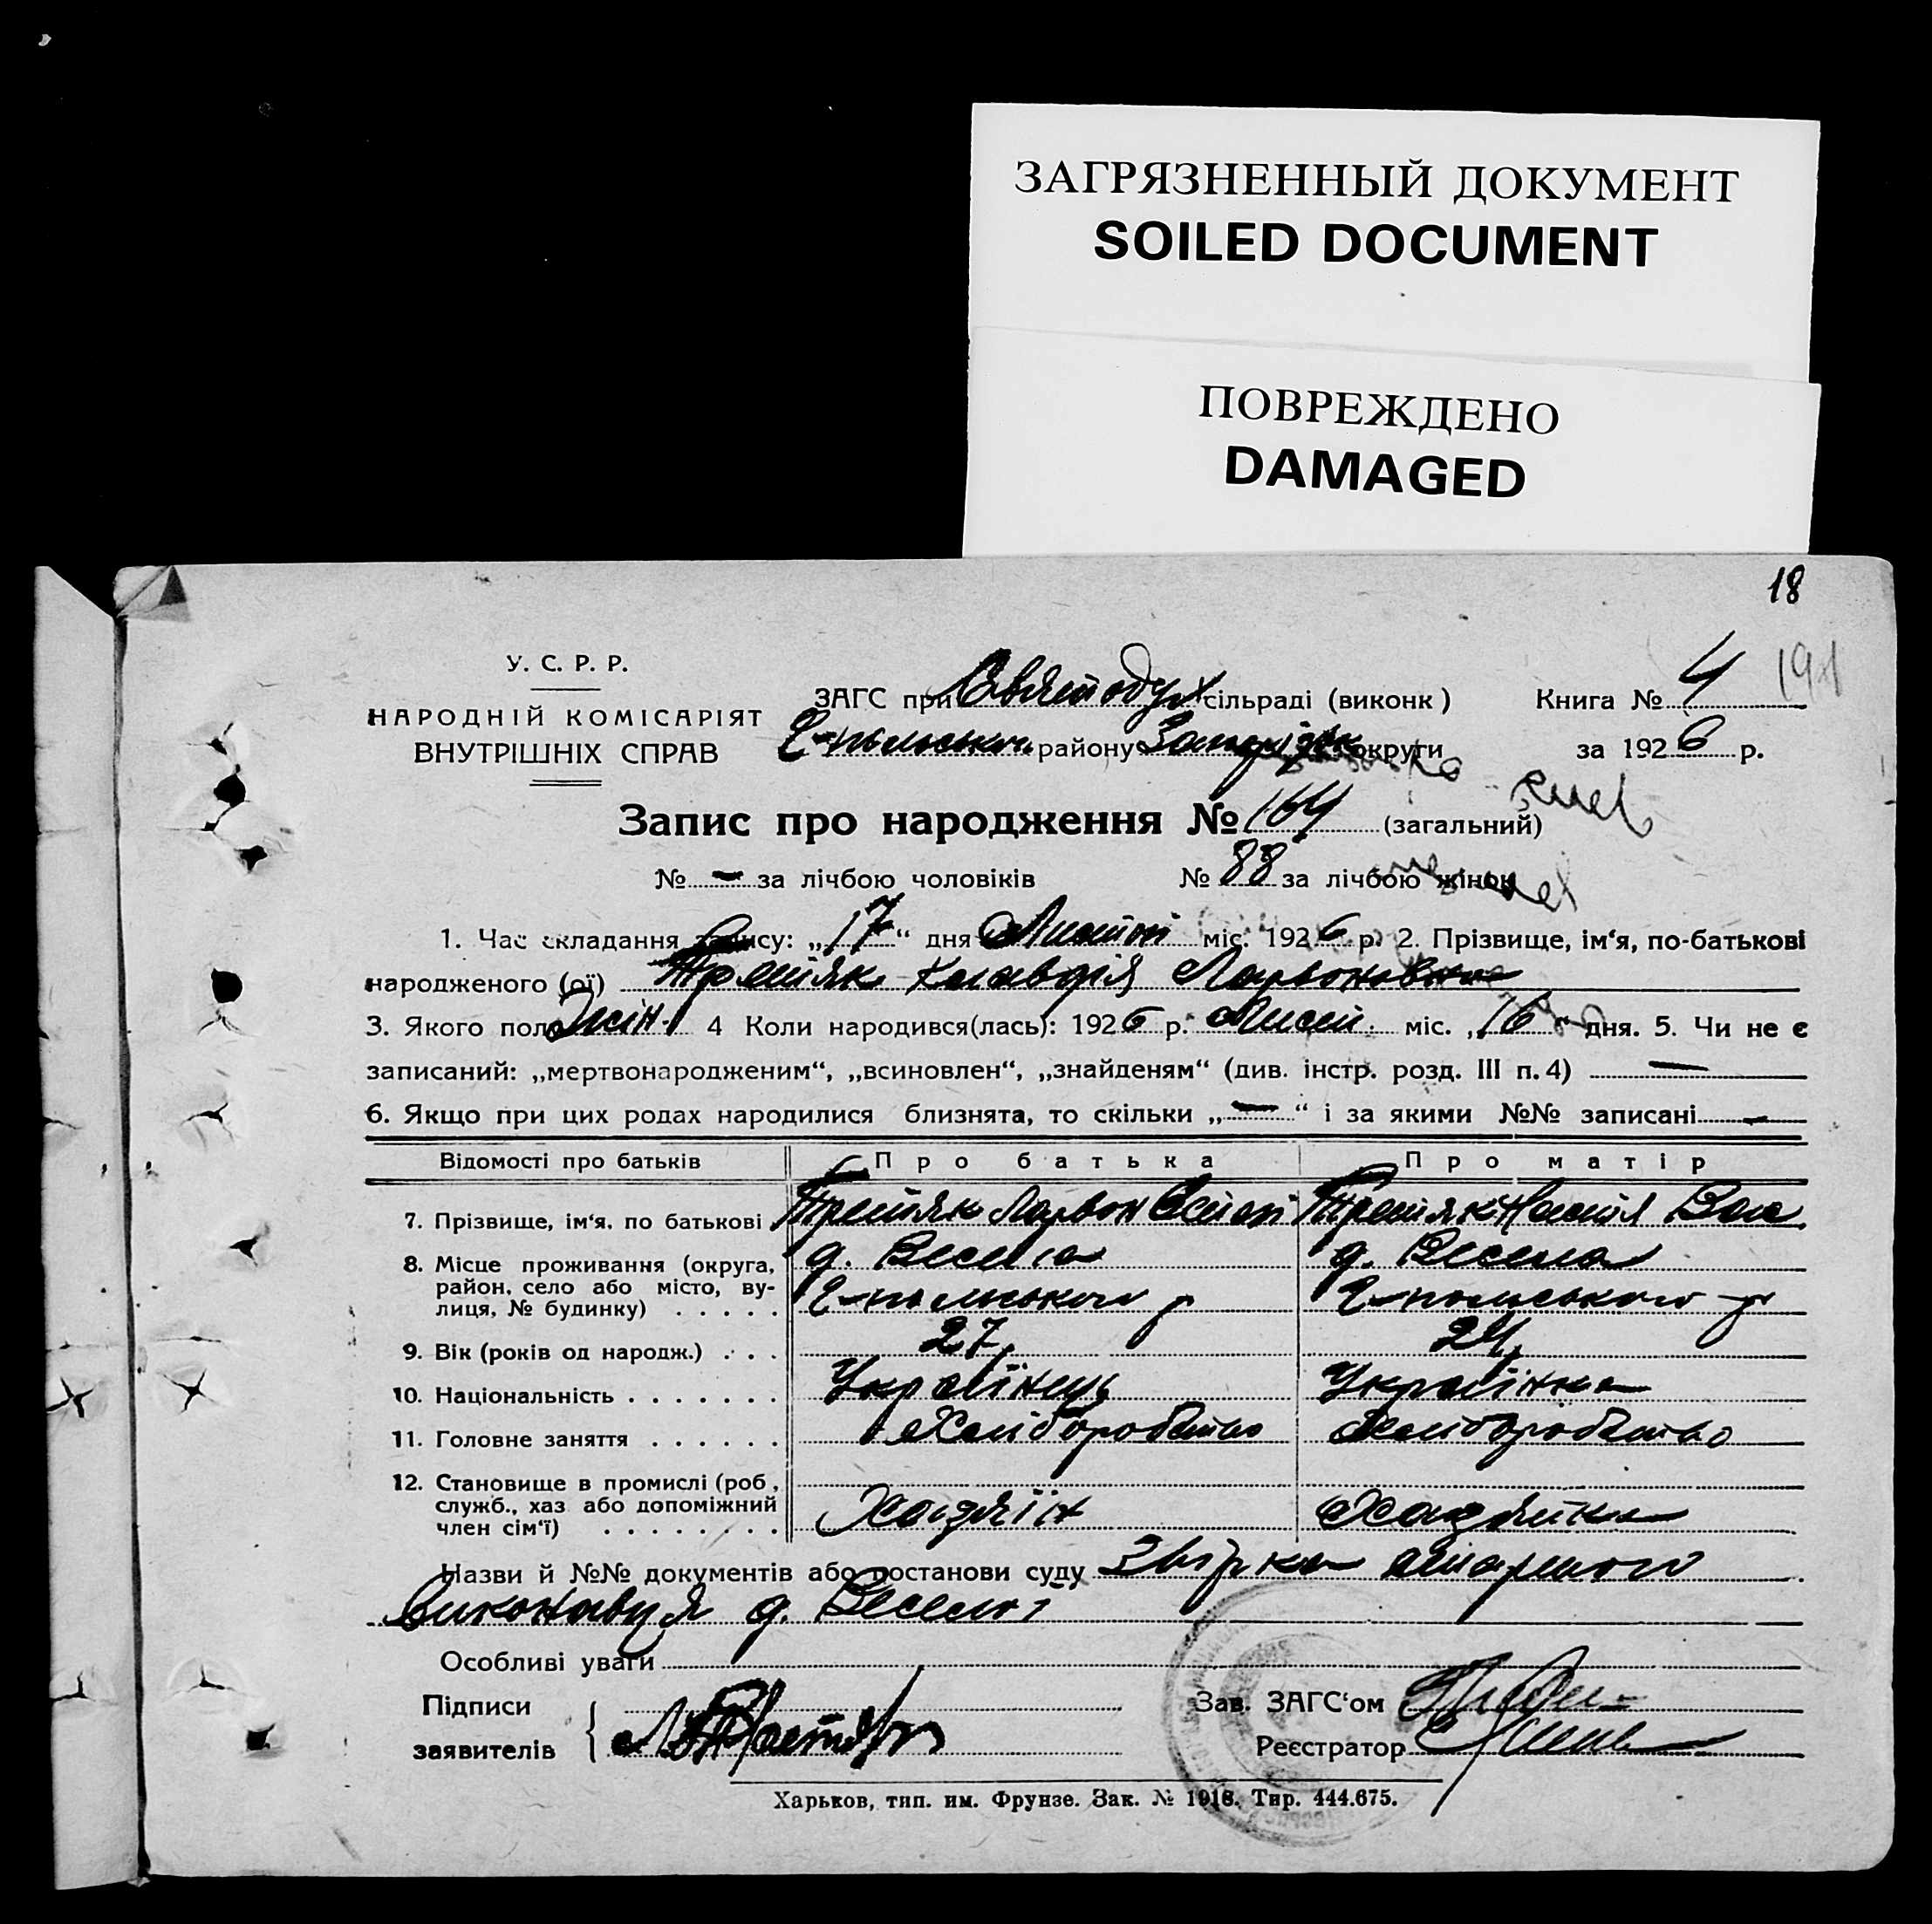 ЗАГРЯЗНЕННЫЙ ДОКУМЕНТ
SOILED DOCUMENT
ПОВРЕЖДЕНО
DAMAGED
18
У. С. Р. Р.
НАРОДНІЙ КОМІСАРІЯТ
ВНУТРІШНІХ СПРАВ
ЗАГС при Святодух сільраді (виконк) Книга № 4 191
району Запоріж округи за 1926 р.
Запис про народження № 164 (загальний)
№ – за лічбою чоловіків № 88 за лічбою жінок
1. Час складання запису: „17“ дня міс. 1926 р. 2. Прізвище, ім‘я, по-батькові
народженого (ої) Третяк Клавдія Ларвоновна
3. Якого пол Жін. 4 Коли народився(лась): 1926 р. Лист. міс. „16“ дня. 5. Чи не є
записаний: „мертвонародженим“, „всиновлен“, „знайденям“ (див. інстр. розд. III п. 4) —
6. Якщо при цих родах народилися близнята, то скільки „—“ і за якими №№ записані —
Відомості про батьків Про батька Про матір
7. Прізвище, ім‘я, по батькові Третяк Ларвон Третяк Настія
8. Місце проживання (округа, район, село або місто, вулиця, № будинку) . . . . . д. Весела д. Весела
9. Вік (років од народж.) . . . 27 24
10. Національність . . . . . . . Українець Українка
11. Головне заняття . . . . . . Хліборобство Хліборобство
12. Становище в промислі (роб., служб., хаз або допоміжний член сім‘ї) . . . . . . . . Хазяїн Хазяйка
Назви й №№ документів або постанови суду Звірка старшого
виконавця д. Веселої
Особливі уваги
Підписи
заявителів
Зав. ЗАГС‘ом
Реєстратор
Харьков, тип. им. Фрунзе. Зак. № 1918. Тир. 444.675.